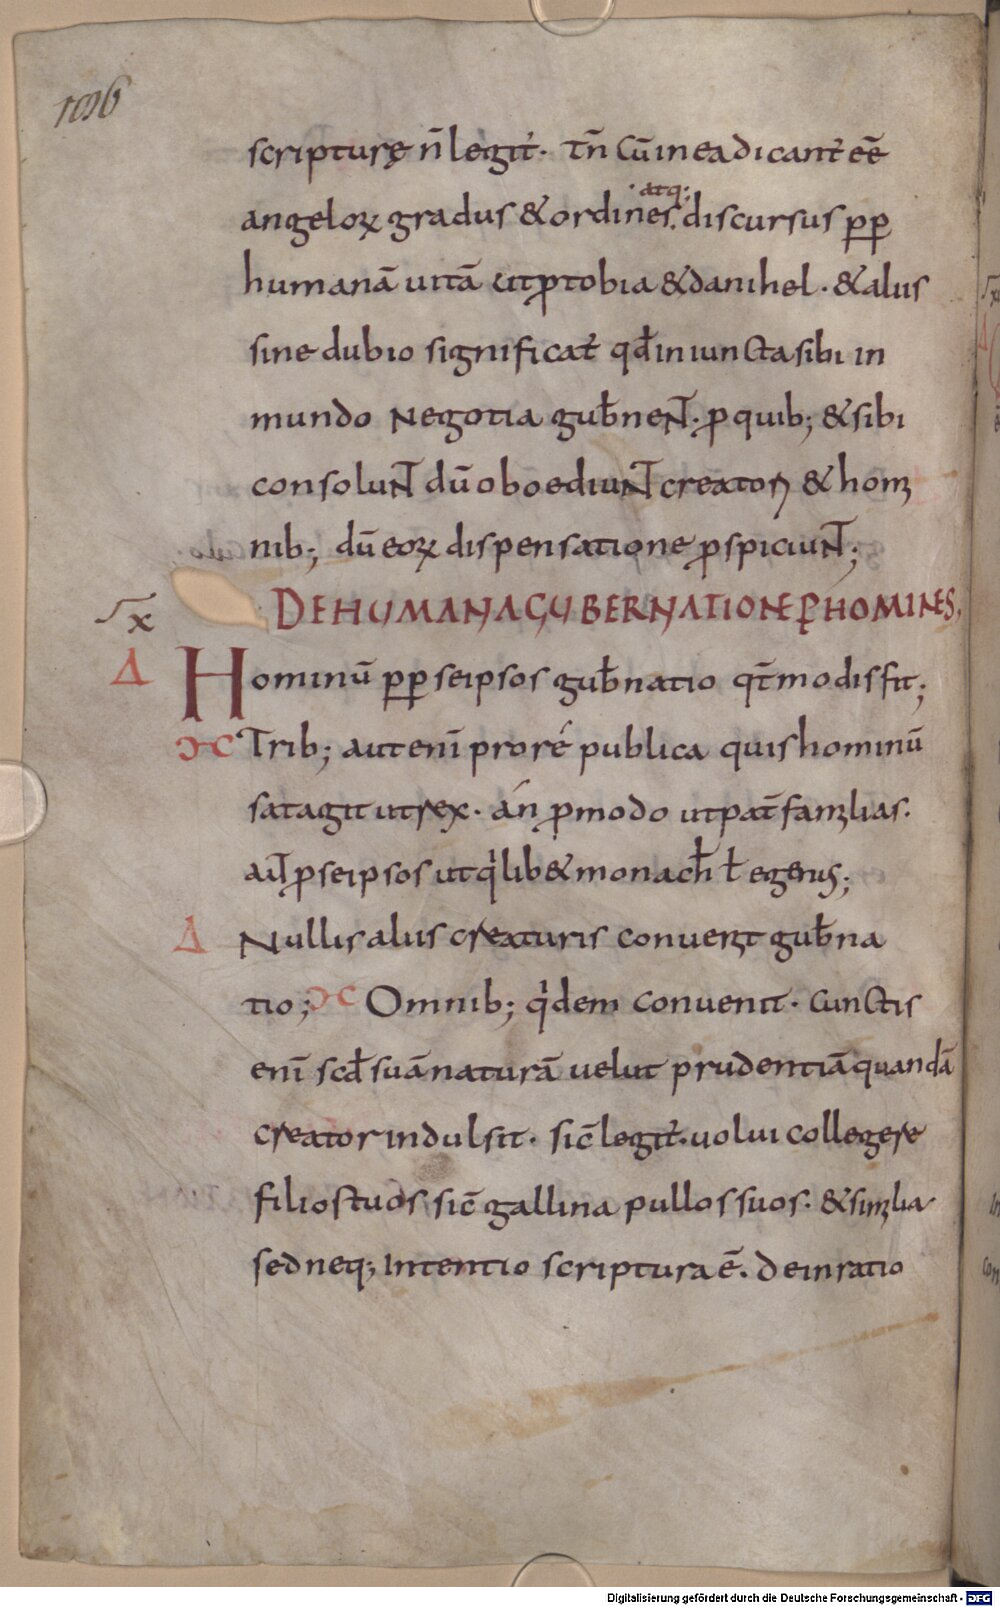 1006
scripturę n̄ legit᷑. tn̄ cū in ea dicant᷑ eē
·atq;·
angeloꝝ gradus & ordines. discursus ꝓp
humanā uitā ut ꝑ tobia & danihel. & aliis
sine dubio significat᷑ qđ iniuncta sibi in
mundo negotia gub̄nent. ꝑ quib; & sibi
consolunt dū oboediunt creatori & homi
nib; dū eoꝝ dispensatione ꝓspiciunt;
√x DE HUMANA GUBERNATIONE ꝑ HOMINES.
Δ Hominū ꝓp seipsos gub̄natio qt̄ modis fit;
ϽC Trib; aut enī pro ré publica quis hominū
satagit ut rex. án ꝓ modo ut pat̄ familias.
aut ꝑ seipsos ut qͥlib& monach̄ ł egenus;
Δ Nullis aliis creaturis conuenit gub̄na
tio; ϽC Omnib; qͥdem conuenit. cunctis
enī scđ suā naturā uelut prudentiā quandā
creator indulsit. sic̄ legit᷑. uolui collegere
filios tuos sic̄ gallina pullos suos. & similia
sed neq; intentio scriptura ē. de inratio
Digitalisierung gefördert durch die Deutsche Forschungsgemeinschaft - DFG